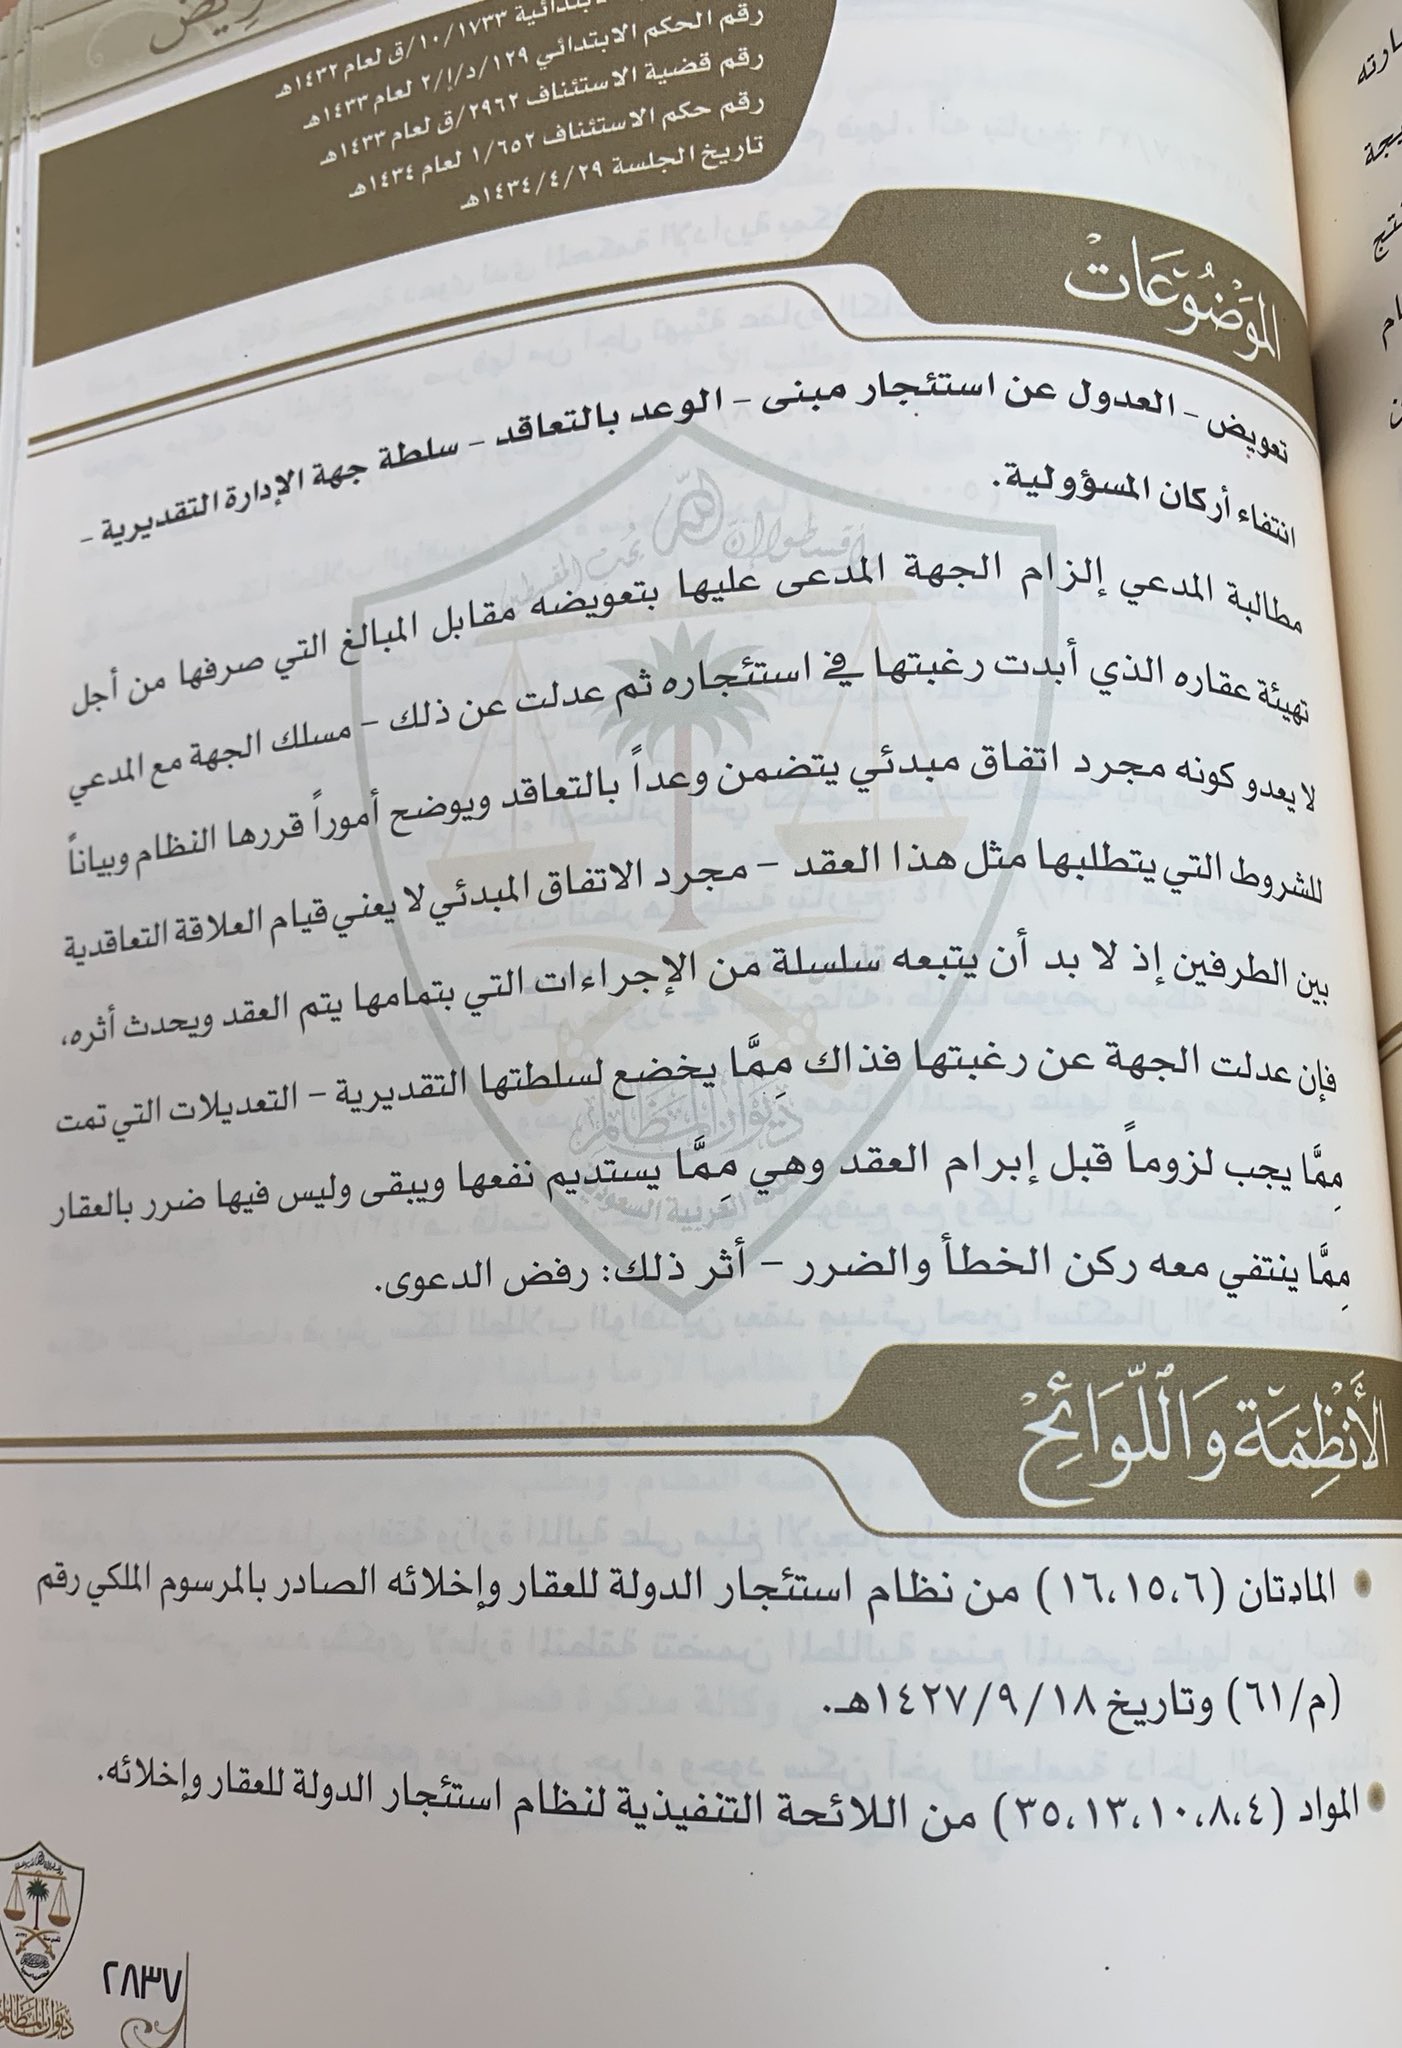 رقم الحكم الابتدائي ١٢٩/د/إ/٢ لعام ١٤٣٣هـ
رقم قضية الاستئناف ٢٩٦٢/ق لعام ١٤٣٣هـ
رقم حكم الاستئناف ١/٦٥٢ لعام ١٤٣٤هـ
تاريخ الجلسة ١٤٣٤/٤/٢٩هـ
المَوْضُوعَات
تعويض – العدول عن استئجار مبنى – الوعد بالتعاقد – سلطة جهة الإدارة التقديرية –
انتفاء أركان المسؤولية.
مطالبة المدعي إلزام الجهة المدعى عليها بتعويضه مقابل المبالغ التي صرفها من أجل
تهيئة عقاره الذي أبدت رغبتها في استئجاره ثم عدلت عن ذلك – مسلك الجهة مع المدعي
لا يعدو كونه مجرد اتفاق مبدئي يتضمن وعداً بالتعاقد ويوضح أموراً قررها النظام وبياناً
للشروط التي يتطلبها مثل هذا العقد – مجرد الاتفاق المبدئي لا يعني قيام العلاقة التعاقدية
بين الطرفين إذ لا بد أن يتبعه سلسلة من الإجراءات التي بتمامها يتم العقد ويحدث أثره،
فإن عدلت الجهة عن رغبتها فذاك مِمَّا يخضع لسلطتها التقديرية – التعديلات التي تمت
مِمَّا يجب لزوماً قبل إبرام العقد وهي مِمَّا يستديم نفعها ويبقى وليس فيها ضرر بالعقار
مِمَّا ينتفي معه ركن الخطأ والضرر – أثر ذلك: رفض الدعوى.
الأَنْظِمَة وَاللَّوَائِح
• المادتان (١٦،١٥،٦) من نظام استئجار الدولة للعقار وإخلائه الصادر بالمرسوم الملكي رقم
(م/٦١) وتاريخ ١٤٢٧/٩/١٨هـ.
• المواد (٣٥،١٣،١٠،٨،٤) من اللائحة التنفيذية لنظام استئجار الدولة للعقار وإخلائه.
ديوان المظالم
٢٨٣٧